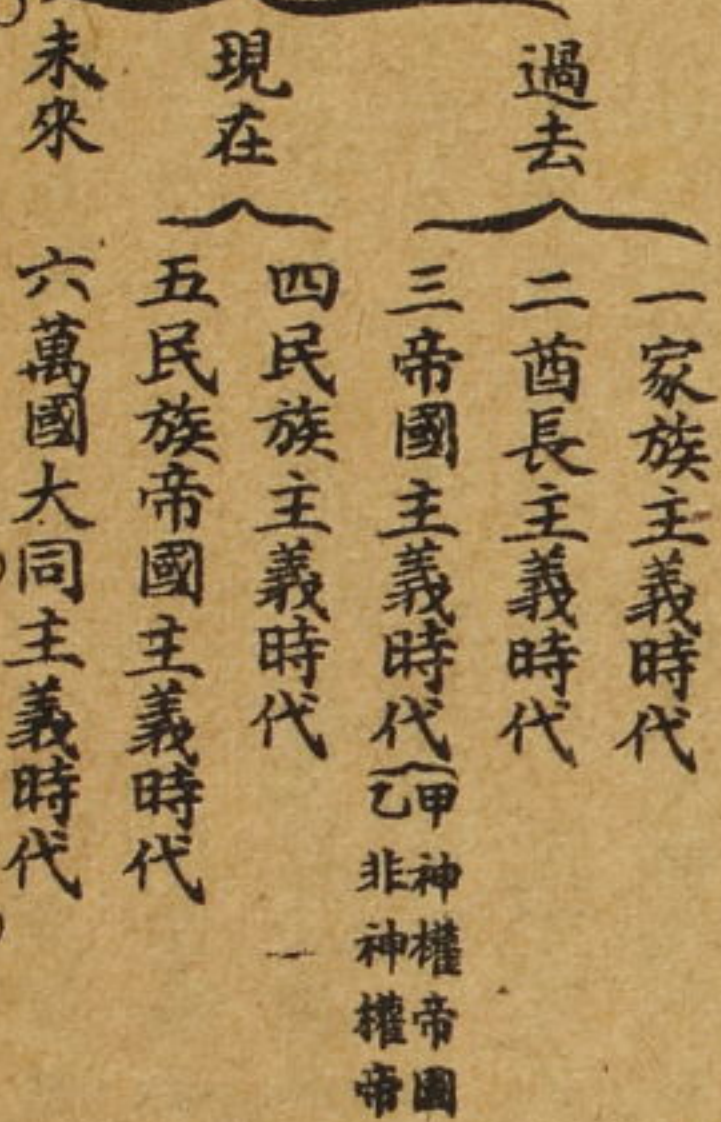 過去
一家族主義時代
二酋長主義時代
三帝國主義時代
甲神權帝國
乙非神權帝
現在
四民族主義時代
五民族帝國主義時代
未來
六萬國大同主義時代